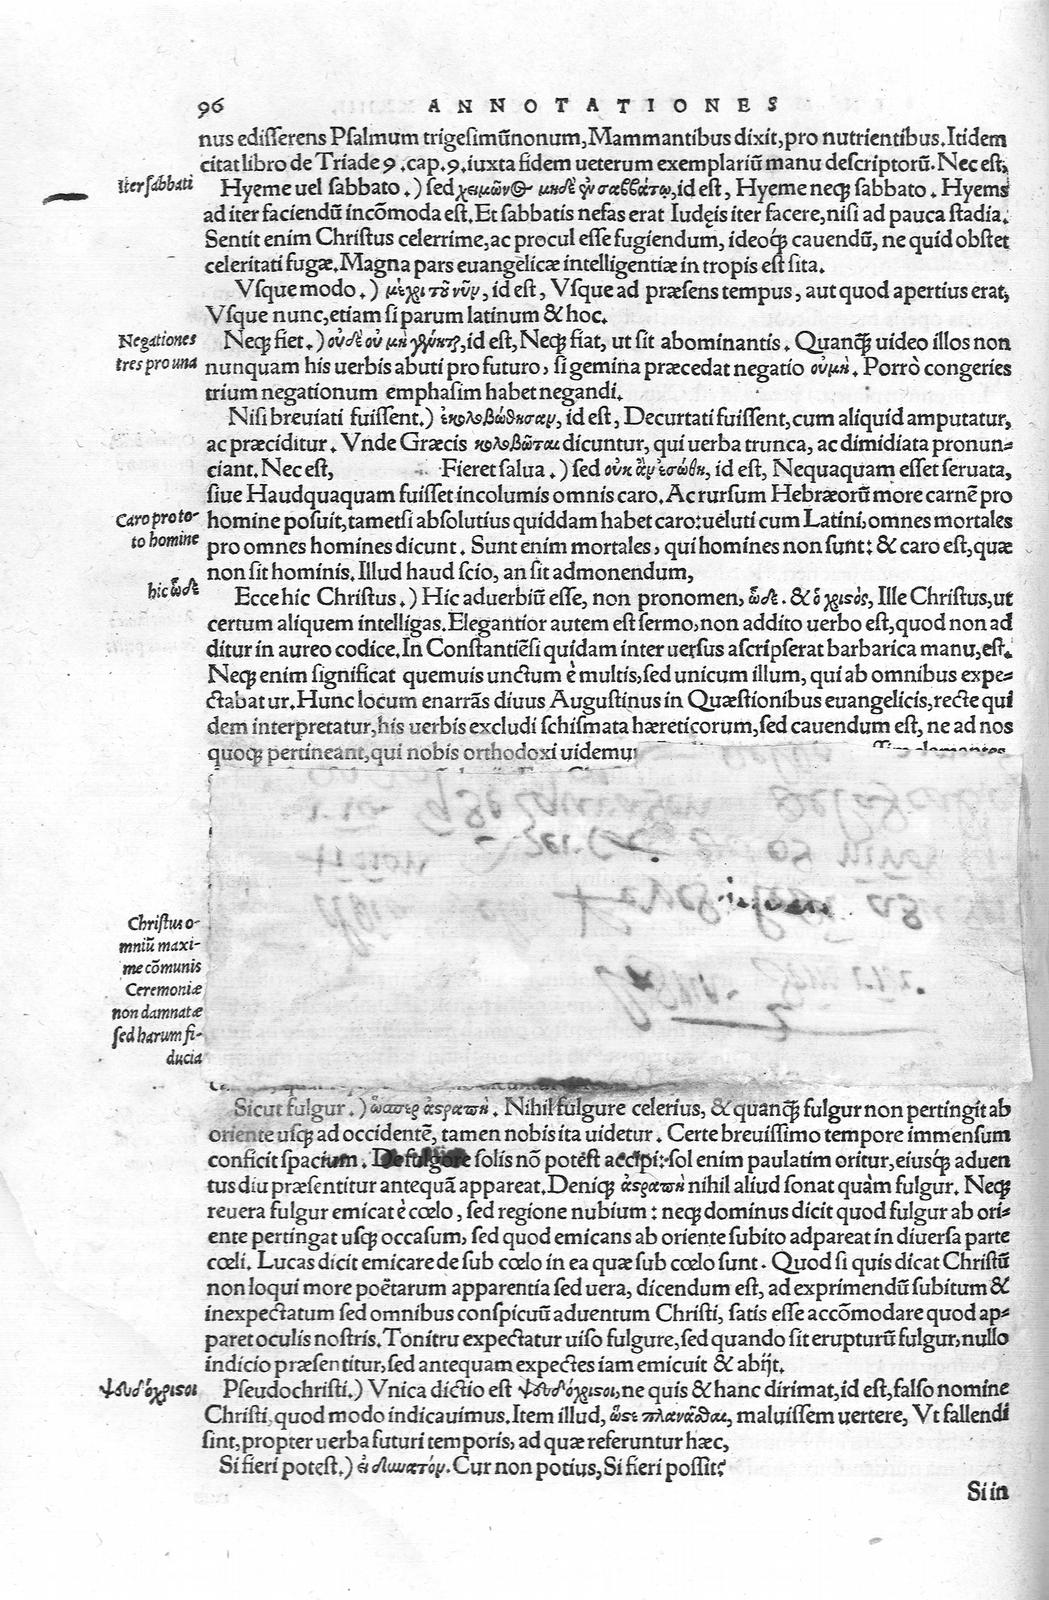 96 ANNOTATIONES
nus edisserens Psalmum trigesimũnonum, Mammantibus dixit, pro nutrientibus. Itidem
citat libro de Triade 9. cap. 9. iuxta fidem ueterum exemplariũ manu descriptorũ. Nec est,
Iter sabbati
Hyeme uel sabbato.) sed χειμῶνος μηδὲ ἐν σαββάτῳ, id est, Hyeme neqꝫ sabbato. Hyems
ad iter faciendũ incõmoda est. Et sabbatis nefas erat Iudęis iter facere, nisi ad pauca stadia.
Sentit enim Christus celerrime, ac procul esse fugiendum, ideoqꝫ́ cauendũ, ne quid obstet
celeritati fugæ. Magna pars euangelicæ intelligentiæ in tropis est sita.
Vsque modo.) μέχρι τοῦ νῦν, id est, Vsque ad præsens tempus, aut quod apertius erat,
Vsque nunc, etiam si parum latinum & hoc.
Negationes
tres pro una
Neqꝫ fiet.) οὐδὲ οὐ μὴ γένηται, id est, Neqꝫ fiat, ut sit abominantis. Quanqꝫ̃ uideo illos non
nunquam his uerbis abuti pro futuro, si gemina præcedat negatio οὐμή. Porrò congeries
trium negationum emphasim habet negandi.
Nisi breuiati fuissent.) ἐκολοβώθησαν, id est, Decurtati fuissent, cum aliquid amputatur,
ac præciditur. Vnde Græcis κολοβῶται dicuntur, qui uerba trunca, ac dimidiata pronun=
ciant. Nec est, Fieret salua.) sed οὐκ ἂν ἐσώθη, id est, Nequaquam esset seruata,
siue Haudquaquam fuisset incolumis omnis caro. Ac rursum Hebræorũ more carnẽ pro
Caro pro to-
to homine
homine posuit, tametsi absolutius quiddam habet caro: ueluti cum Latini, omnes mortales
pro omnes homines dicunt. Sunt enim mortales, qui homines non sunt: & caro est, quæ
non sit hominis. Illud haud scio, an sit admonendum,
hic ὧδε
Ecce hic Christus.) Hic aduerbiũ esse, non pronomen, ὧδε. & ὁ χριστὸς, Ille Christus, ut
certum aliquem intelligas. Elegantior autem est sermo, non addito uerbo est, quod non ad
ditur in aureo codice. In Constantiẽsi quidam inter uersus ascripserat barbarica manu, est.
Neqꝫ enim significat quemuis unctum è multis, sed unicum illum, qui ab omnibus expe=
ctabatur. Hunc locum enarrãs diuus Augustinus in Quæstionibus euangelicis, recte qui
dem interpretatur, his uerbis excludi schismata hæreticorum, sed cauendum est, ne ad nos
quoqꝫ pertineant, qui nobis orthodoxi uidemur
Christus o-
mniũ maxi-
me cõmunis
Ceremoniæ
non damnatæ
sed harum fi-
ducia
Sicut fulgur.) ὥσπερ ἀστραπή. Nihil fulgure celerius, & quanqꝫ̃ fulgur non pertingit ab
oriente usqꝫ ad occidentẽ, tamen nobis ita uidetur. Certe breuissimo tempore immensum
conficit spacium. De fulgore solis nõ potest accipi: sol enim paulatim oritur, eiusqꝫ́ aduen
tus diu præsentitur antequã appareat. Deniqꝫ ἀστραπὴ nihil aliud sonat quàm fulgur. Neqꝫ
reuera fulgur emicat è cœlo, sed regione nubium: neqꝫ dominus dicit quod fulgur ab ori=
ente pertingat usqꝫ occasum, sed quod emicans ab oriente subito adpareat in diuersa parte
cœli. Lucas dicit emicare de sub cœlo in ea quæ sub cœlo sunt. Quod si quis dicat Christũ
non loqui more poëtarum apparentia sed uera, dicendum est, ad exprimendũ subitum &
inexpectatum sed omnibus conspicuũ aduentum Christi, satis esse accõmodare quod ap=
paret oculis nostris. Tonitru expectatur uiso fulgure, sed quando sit erupturũ fulgur, nullo
indicio præsentitur, sed antequam expectes iam emicuit & abijt.
ψευδόχριστοι
Pseudochristi.) Vnica dictio est ψευδόχριστοι, ne quis & hanc dirimat, id est, falso nomine
Christi, quod modo indicauimus. Item illud, ὥστε πλανᾶσθαι, maluissem uertere, Vt fallendi
sint, propter uerba futuri temporis, ad quæ referuntur hæc,
Si fieri potest.) εἰ δυνατόν. Cur non potius, Si fieri possit?
Si in